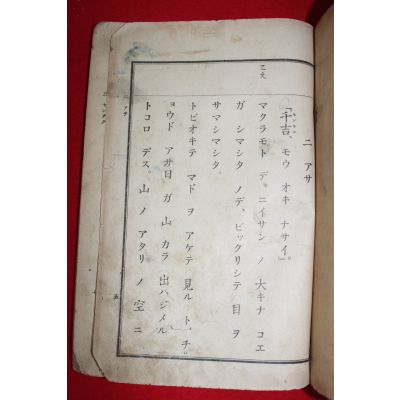 二 アサ
「千吉、モウ オキ ナサイ」。
マクラモト デ、ニイサン ノ 大キナ コエ
ガ シマシタ ノデ、ビックリシテ 目 ヲ
サマシマシタ。
トビオキテ マド ヲ アケテ 見ル ト、チ
ョウド アサ日 ガ 山 カラ 出ハジメル
トコロ デス。山 ノ アタリ ノ 空 ニ
こえ
五